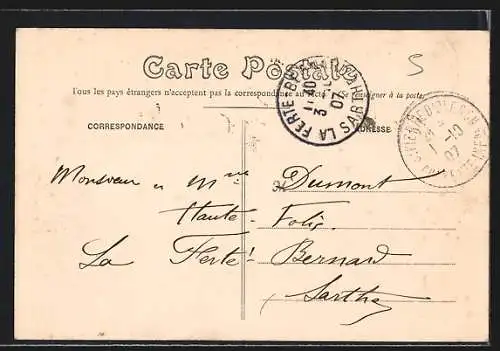 5
Carte Postale
Tous les pays étrangers n'acceptent pas la correspondance au recto (Se renseigner à la poste)
CORRESPONDANCE
ADRESSE
LA FERTE-BERNARD SARTHE
3 10 07
1 -10
07
Monsieur et Mme Dumont
Haute-Folie
La Ferté Bernard
Sarthe